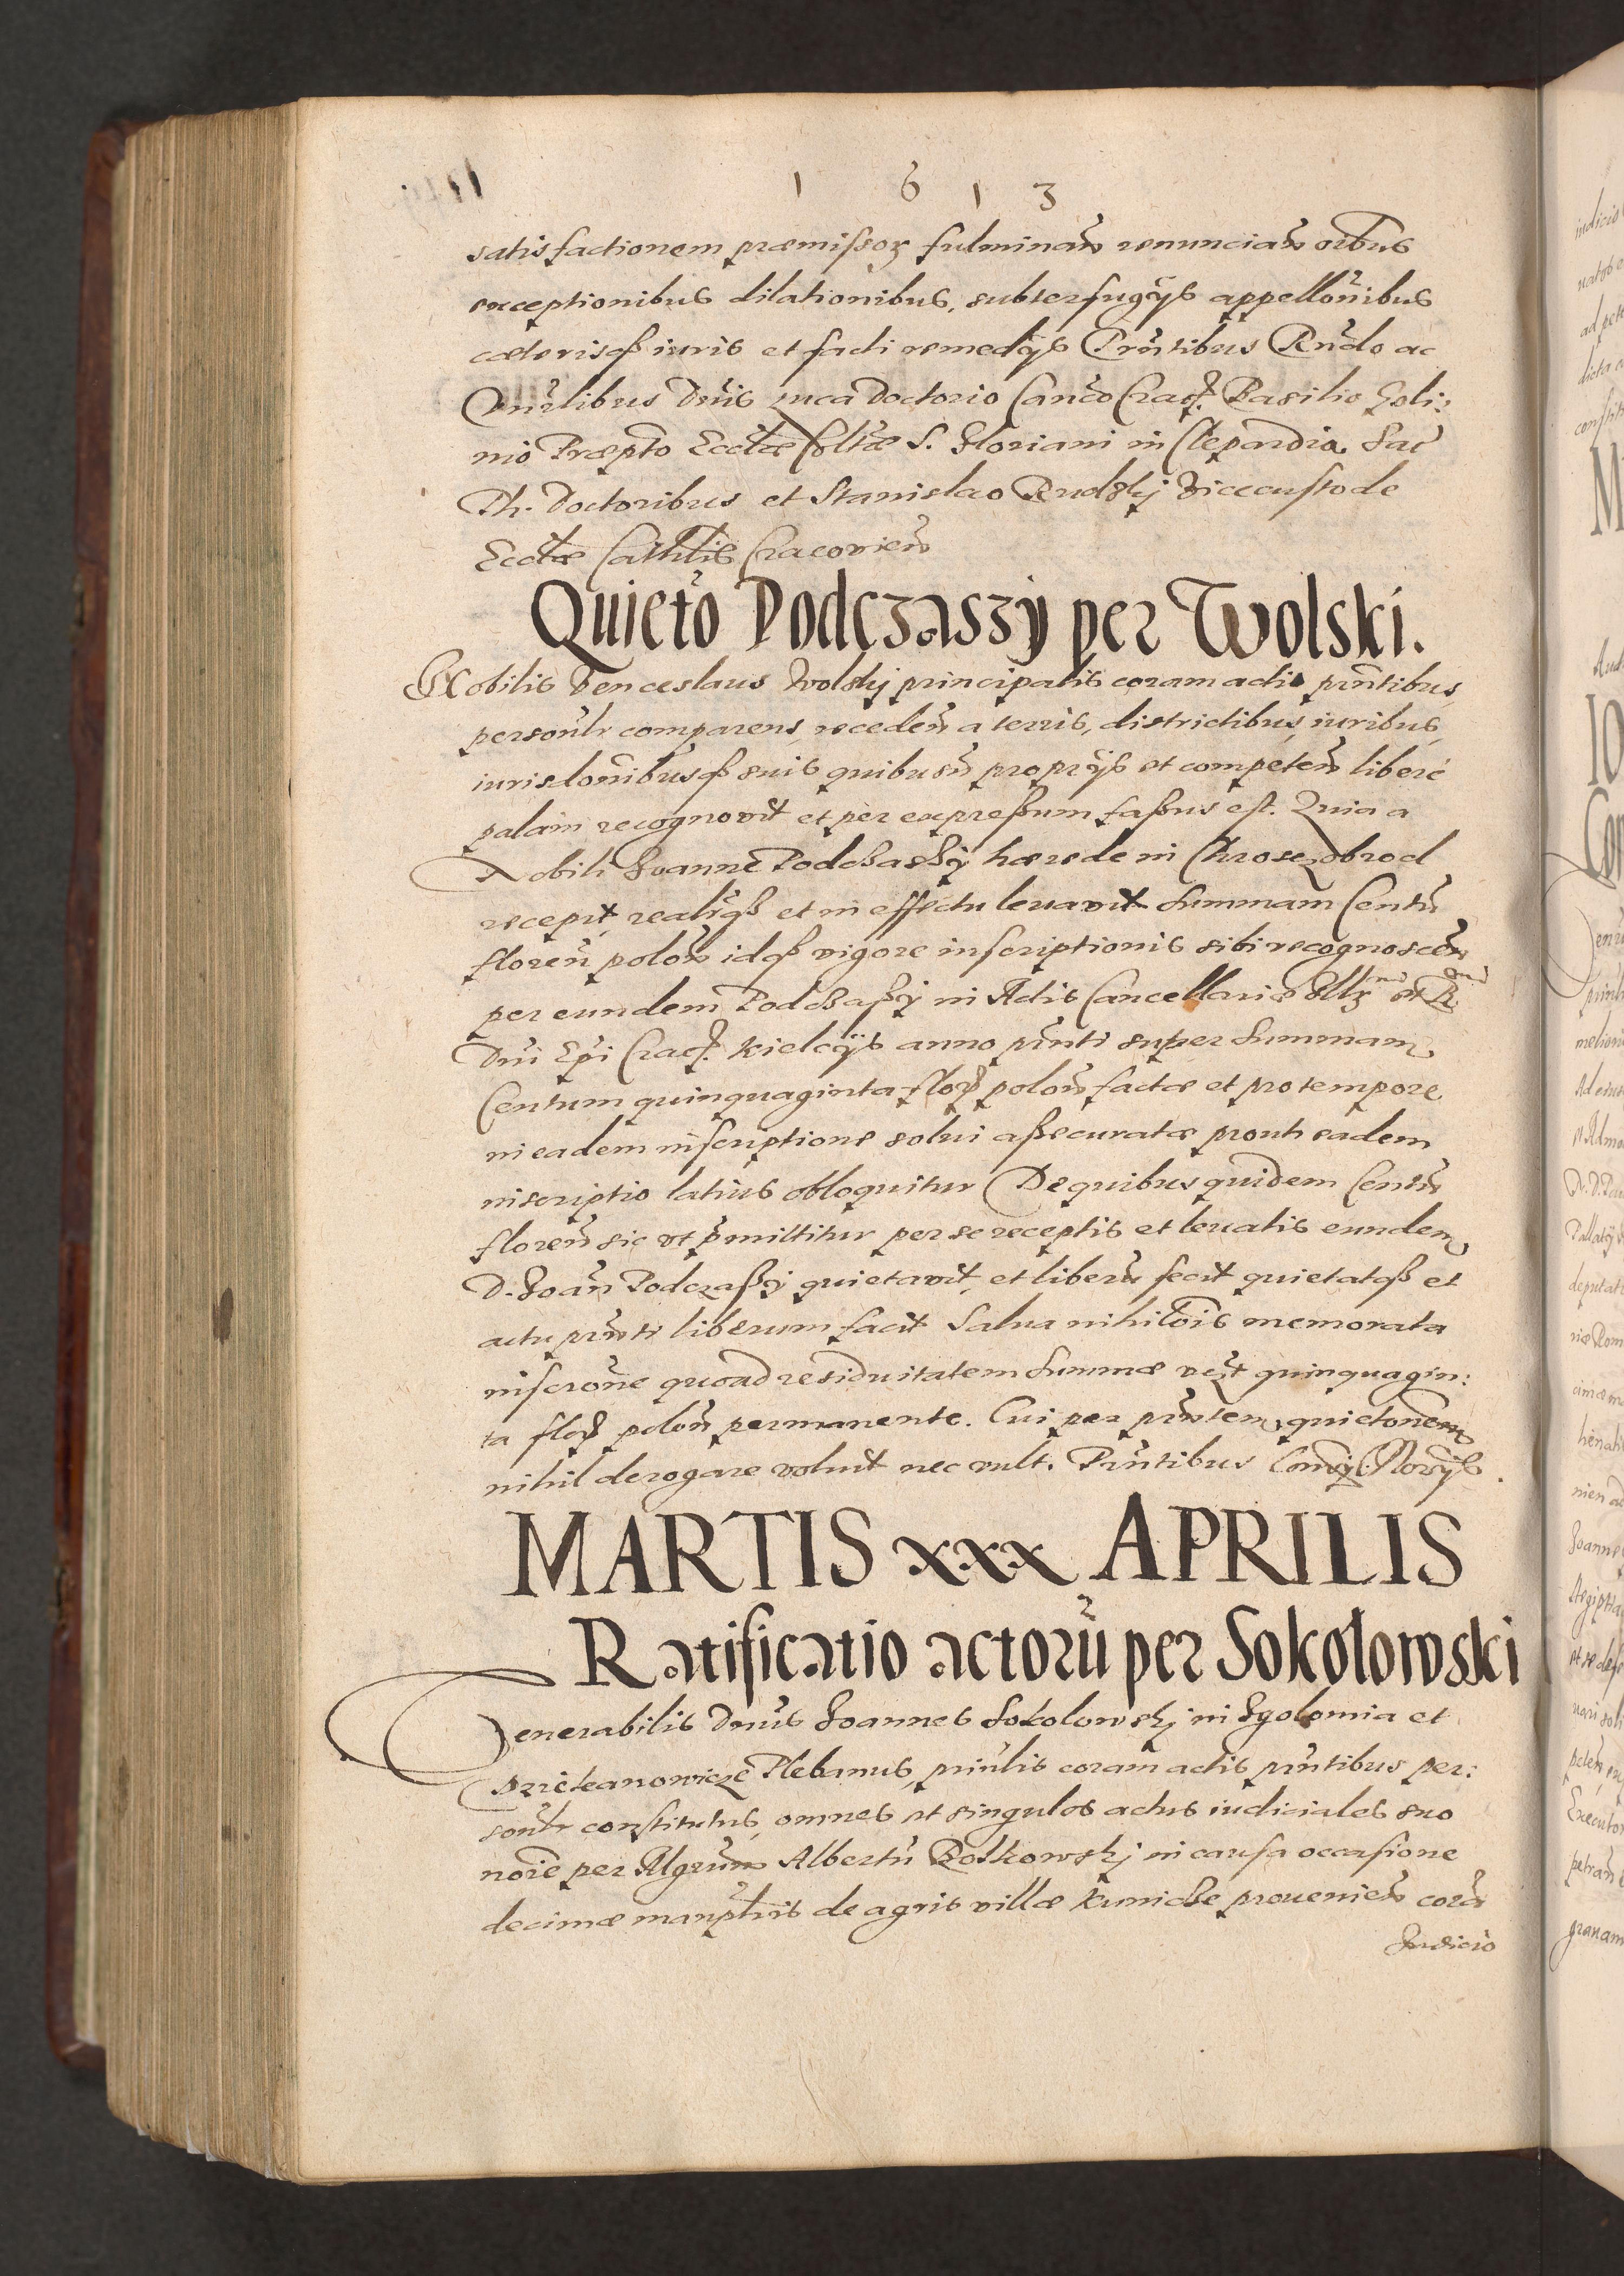 1 6 1 3
satisfactionem præmissoꝝ fulminan̄ renuncian̄ oībus
exceptionibus dilationibus, subterfugÿs appellōnibus
cæterisqꝫ iuris et facti remedÿs Prn̄tibus Rn̄do ac
Vnr̄libus Dnīs Luca Doctorio Can̄co Crac̄. Basilio Goli:
nio Præpto Eccłæ Collæ S. Floriani in Clepardia Sac
Th. Doctoribus et Stanislao Rudskj Vicecustode
Eccłæ Cathlis Cracovien̄
Quieto Podczaszÿ per Wolski.
Nobilis Venceslaus Wolskj principalis coram actis prn̄tibus
personlr comparens, receden̄ a terris, districtibus, iuribus,
iurisdonibusqꝫ suis quibusn̄ proprÿs et competen̄ liberè
palàm recognovit et per expressum fassus est. Quia a
Nobili Joanne Podczaszÿ hærede in Chrosczobrod
recepit, realrqꝫ et in effectu levavit Summam Centū
floren̄ polon̄ idqꝫ vigore inscriptionis sibi recognoscen̄
per eundem Podczassÿ in Actis Cancellariæ Illꝫ mi et R ndi
Dnī Epi Crac̄. Kielcÿs anno prn̄ti super Summam
Centum quinquaginta flor̄ polon̄ factæ et pro tempore
in eadem inscriptione solui assecuratæ prout eadem
inscriptio latius obloquitur De quibus quidem Centū
floren̄ sic ut p̄mittitur per se receptis et levatis eundem
D. Joan̄ Podczassÿ quietavit, et liberū fecit quietatqꝫ et
actu prn̄ti liberum facit Salva nihilōis memorata
inscrōne quoad residuitatem Summæ vꝫt quinquagin:
ta flor̄ polon̄ permanente. Cui per prn̄tem quietonem
nihil derogare voluit nec vult. Prn̄tibus
MARTIS xxx APRILIS
Ratificatio actorū per Sokołowski
Venerabilis Dnūs Joannes Sokolowskj in Igolomia et
Plebanus, prin̄lis coram actis prn̄tibus per:
sonlr constitutus, omnes et singulos actus iudiciales suo
noīe per Algrum Albertū Roskowskj in causa occasione
decimæ manplris de agris villæ Kunicze provenien̄ corā
Iudicio